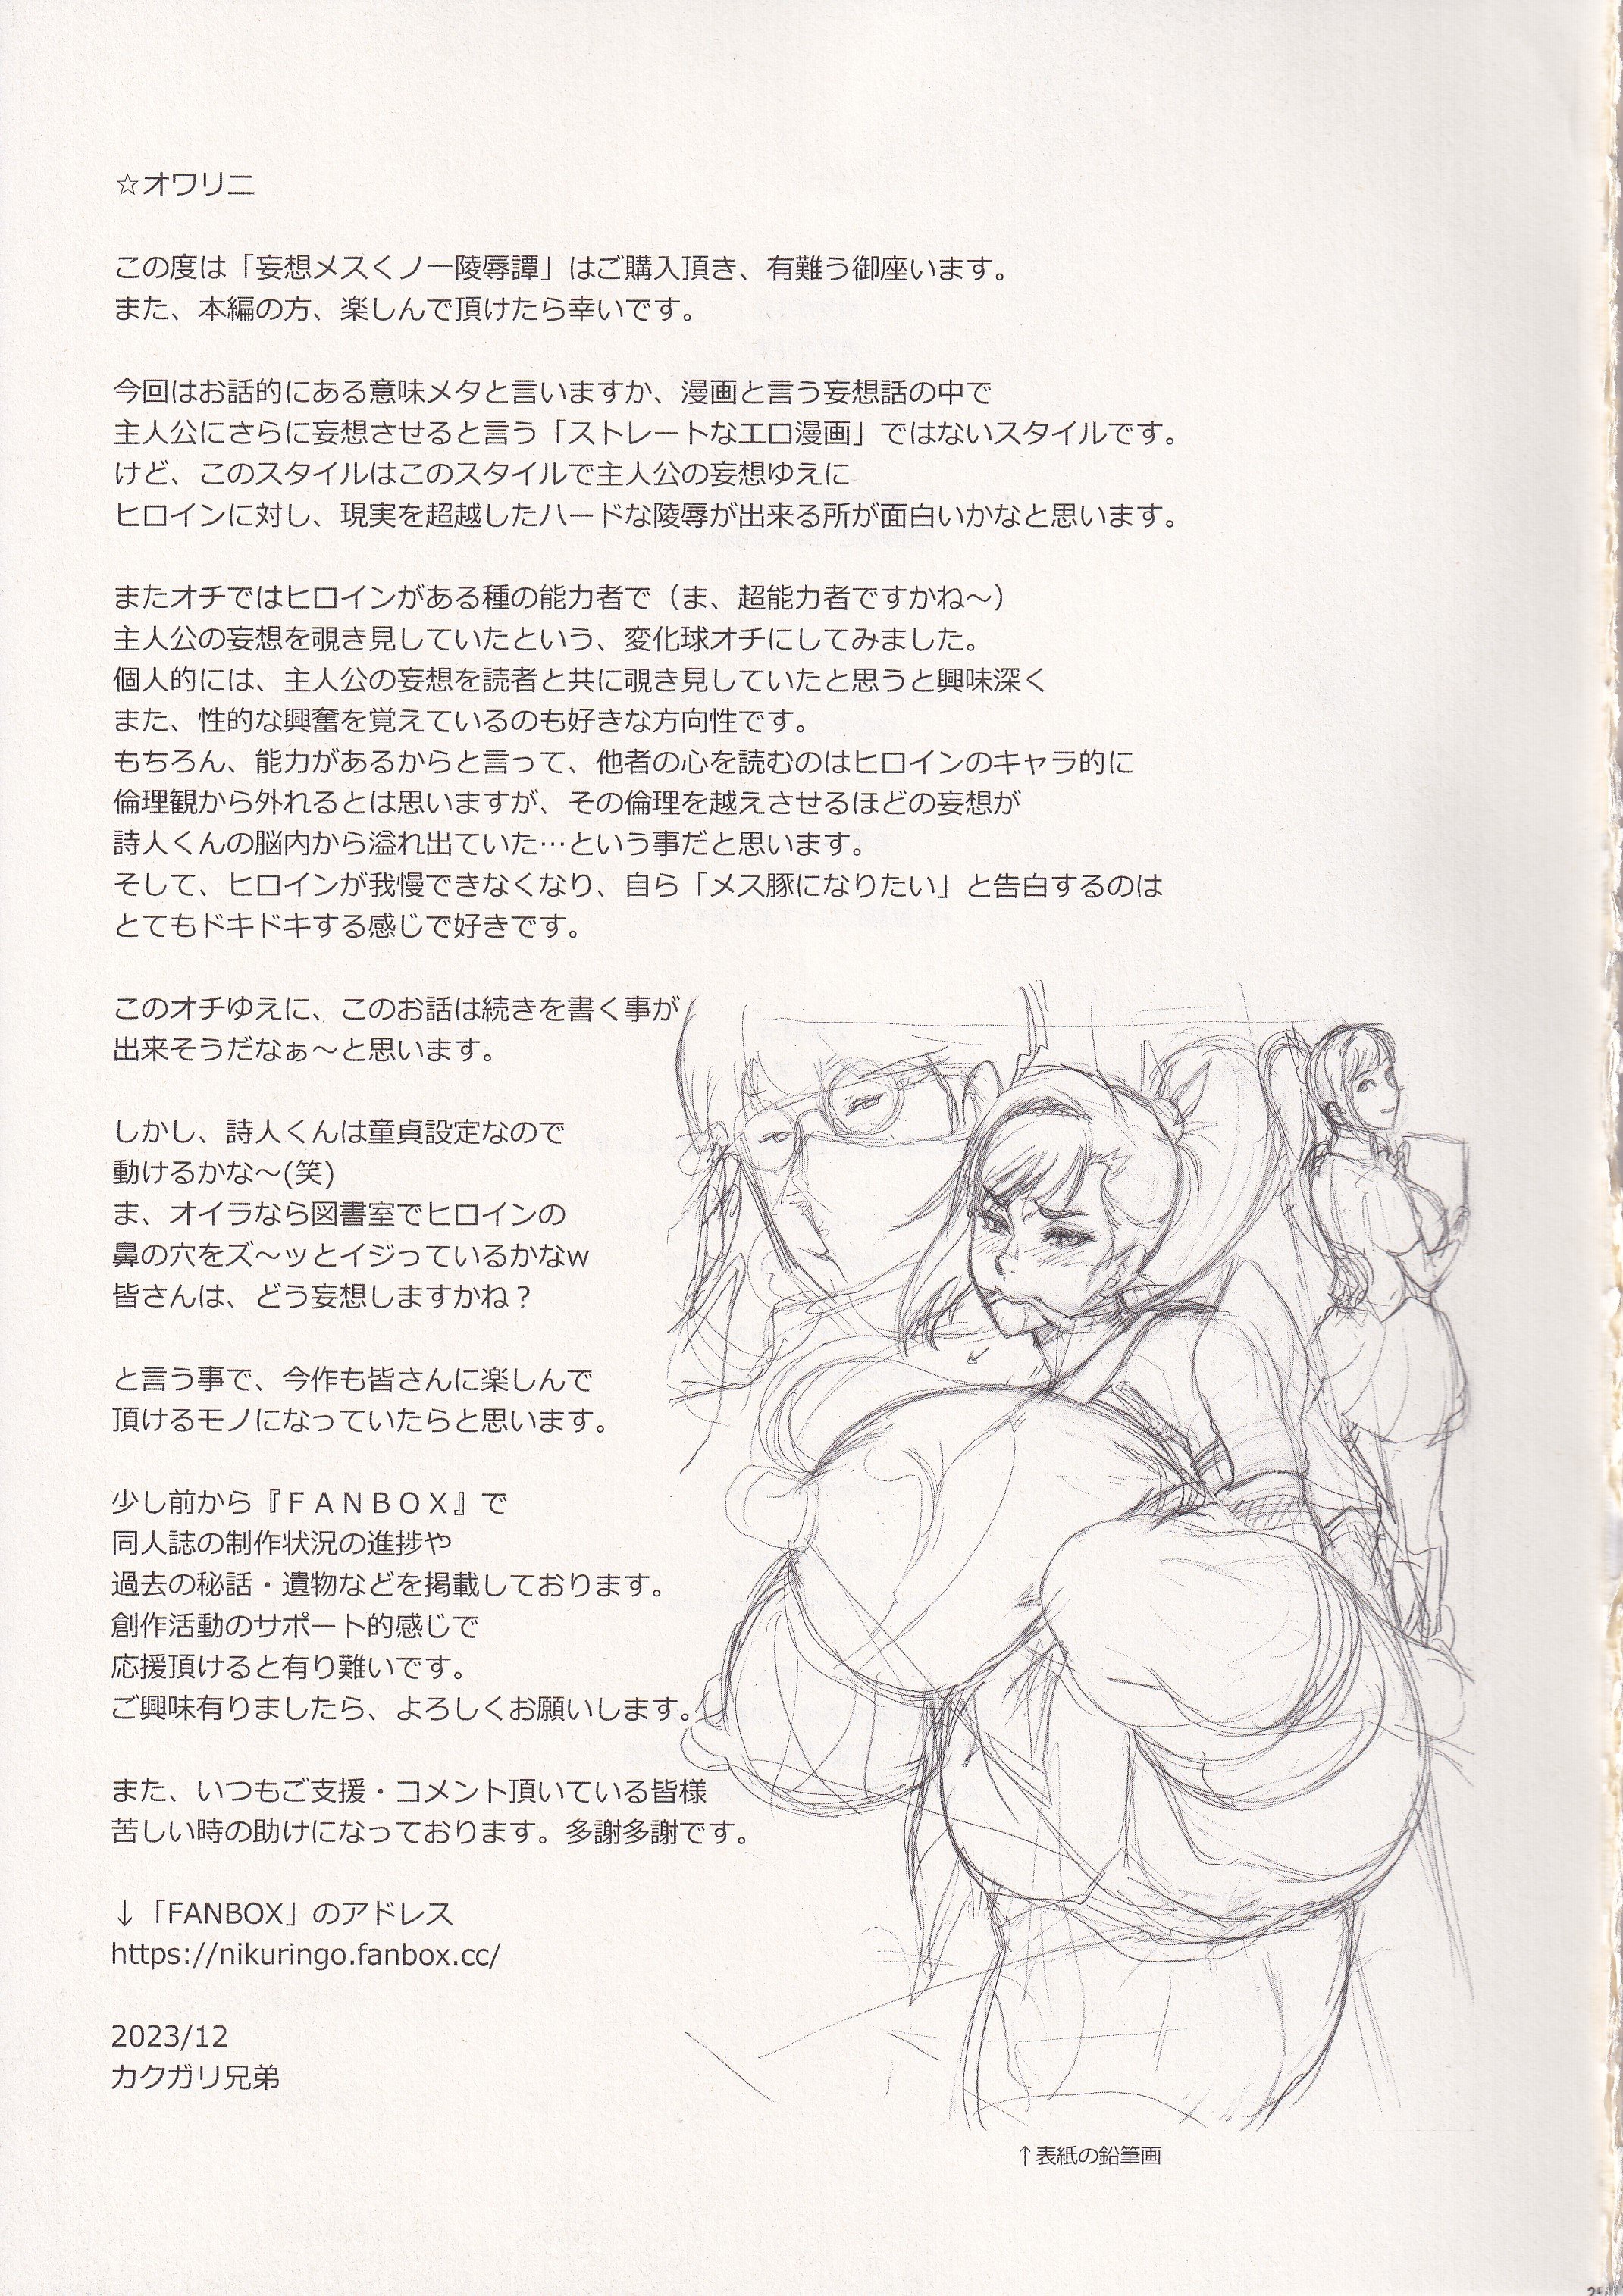 ☆オワリニ
この度は「妄想メスくノ一陵辱譚」はご購入頂き、有難う御座います。
また、本編の方、楽しんで頂けたら幸いです。
今回はお話的にある意味メタと言いますか、漫画と言う妄想話の中で
主人公にさらに妄想させると言う「ストレートなエロ漫画」ではないスタイルです。
けど、このスタイルはこのスタイルで主人公の妄想ゆえに
ヒロインに対し、現実を超越したハードな陵辱が出来る所が面白いかなと思います。
またオチではヒロインがある種の能力者で（ま、超能力者ですかね～）
主人公の妄想を覗き見していたという、変化球オチにしてみました。
個人的には、主人公の妄想を読者と共に覗き見していたと思うと興味深く
また、性的な興奮を覚えているのも好きな方向性です。
もちろん、能力があるからと言って、他者の心を読むのはヒロインのキャラ的に
倫理観から外れるとは思いますが、その倫理を越えさせるほどの妄想が
詩人くんの脳内から溢れ出ていた…という事だと思います。
そして、ヒロインが我慢できなくなり、自ら「メス豚になりたい」と告白するのは
とてもドキドキする感じで好きです。
このオチゆえに、このお話は続きを書く事が
出来そうだなぁ～と思います。
しかし、詩人くんは童貞設定なので
動けるかな～(笑)
ま、オイラなら図書室でヒロインの
鼻の穴をズ～ッとイジっているかなw
皆さんは、どう妄想しますかね？
と言う事で、今作も皆さんに楽しんで
頂けるモノになっていたらと思います。
少し前から『ＦＡＮＢＯＸ』で
同人誌の制作状況の進捗や
過去の秘話・遺物などを掲載しております。
創作活動のサポート的感じで
応援頂けると有り難いです。
ご興味有りましたら、よろしくお願いします。
また、いつもご支援・コメント頂いている皆様
苦しい時の助けになっております。多謝多謝です。
↓「FANBOX」のアドレス
https://nikuringo.fanbox.cc/
2023/12
カクガリ兄弟
↑表紙の鉛筆画